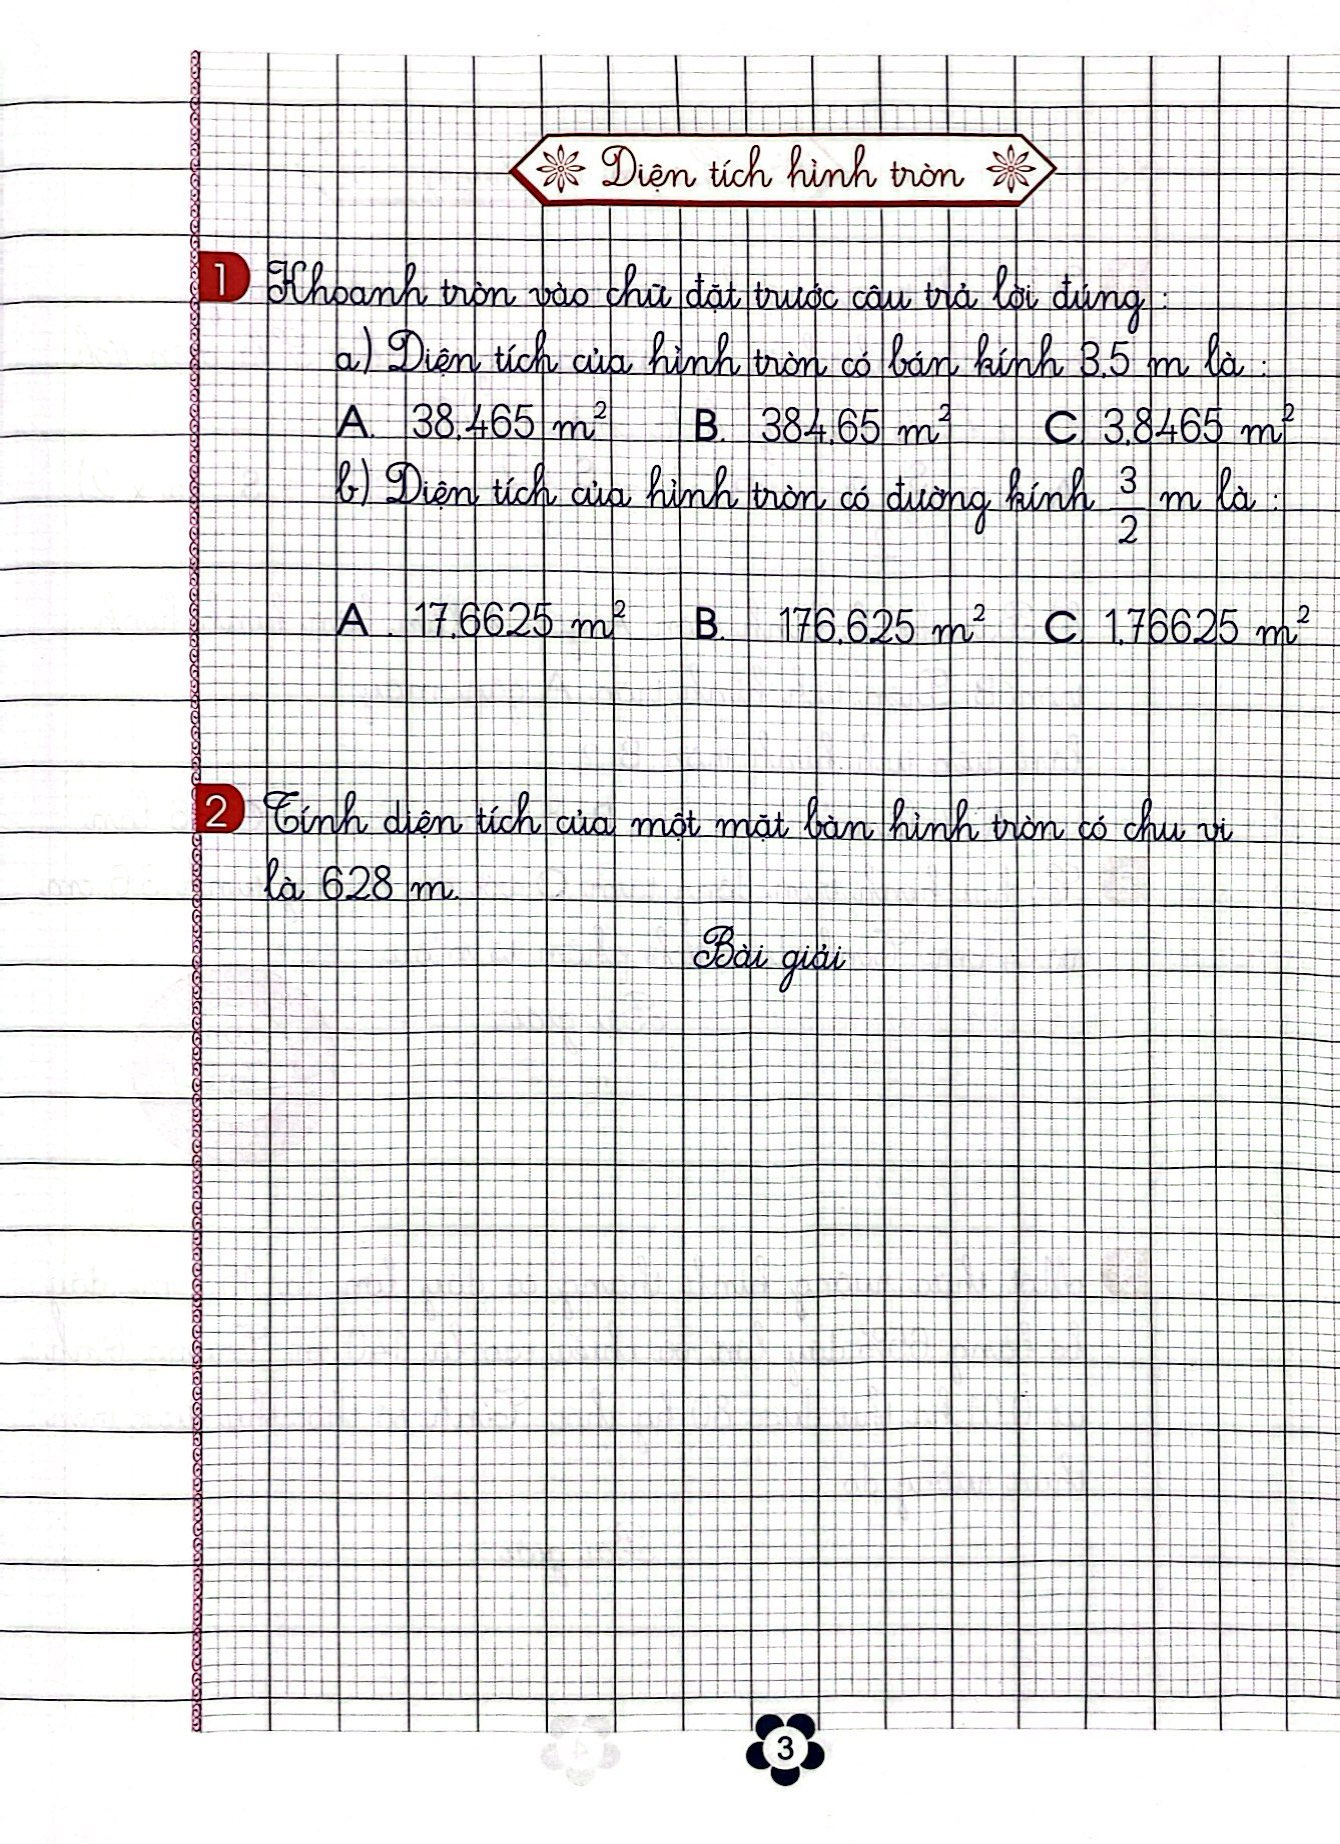 Diện tích hình tròn
1 Khoanh tròn vào chữ đặt trước câu trả lời đúng :
a) Diện tích của hình tròn có bán kính 3,5 m là :
A. 38,465 m² B. 384,65 m² C. 3,8465 m²
b) Diện tích của hình tròn có đường kính 3/2 m là :
A. 17,6625 m² B. 176,625 m² C. 1,76625 m²
2 Tính diện tích của một mặt bàn hình tròn có chu vi
là 628 m.
Bài giải
3